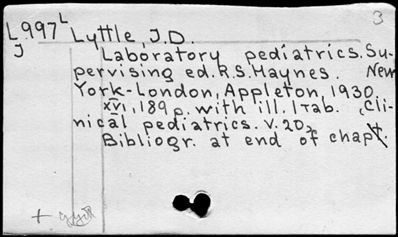 3
L997L Lyttle, J.D.
J Laboratory pediatrics. Su-
pervising ed. R.S. Haynes. New
York-London, Appleton, 1930.
xvi, 189 p. with ill. 1 tab. (Cli-
nical pediatrics. v. 20)
Bibliogr. at end of chapt.
+